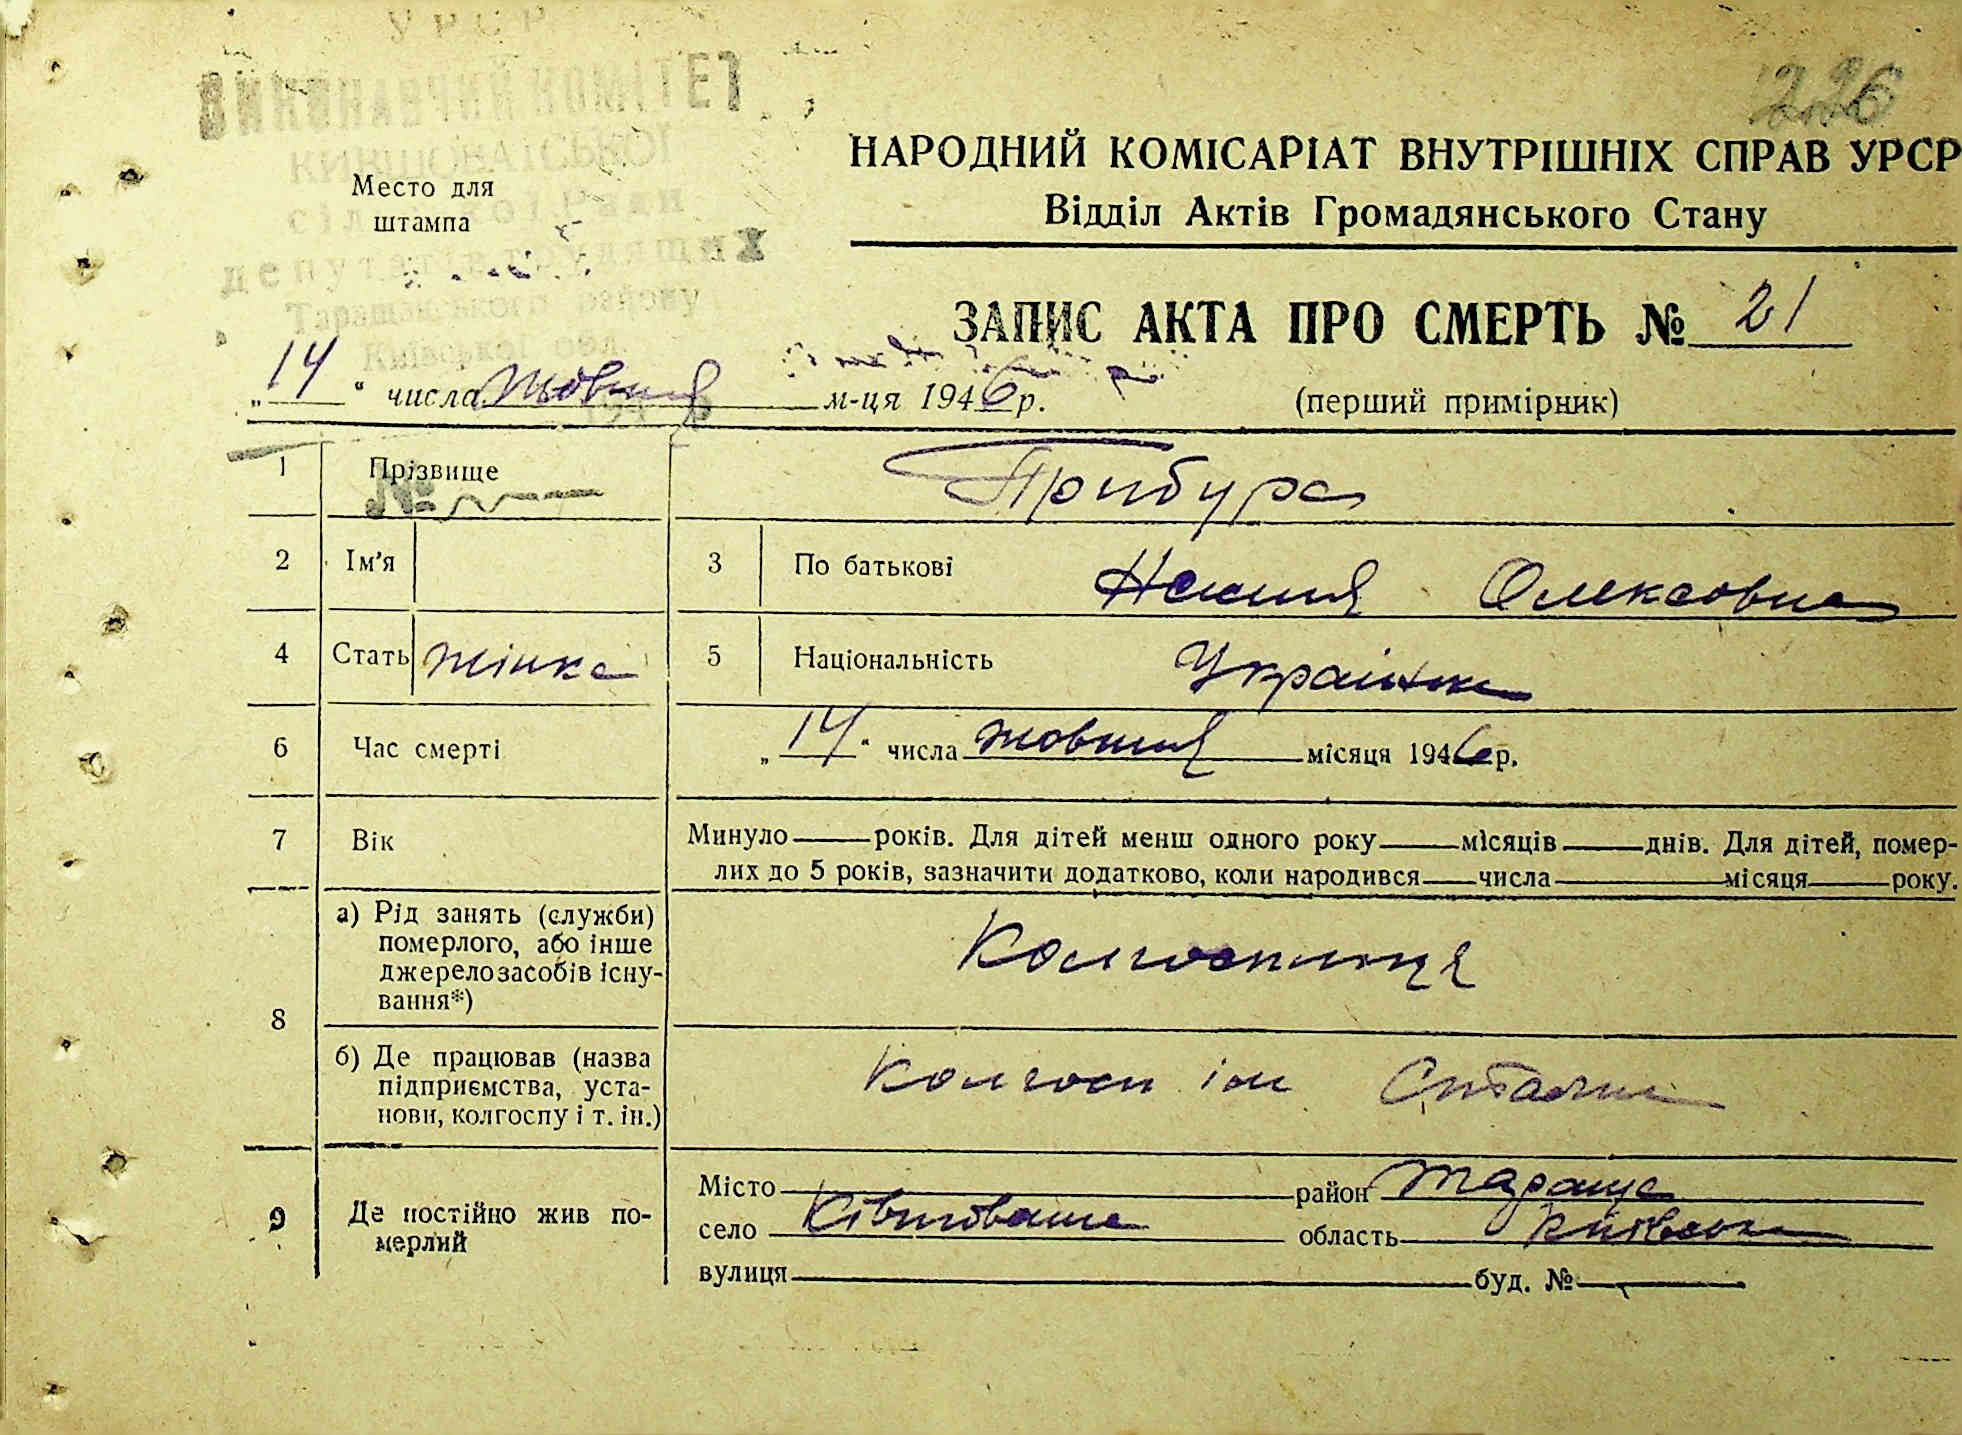 УРСР
226
ВИКОНАВЧИЙ КОМІТЕТ
КИВШОВАТСЬКОЇ
сільської Ради
депутатів трудящих
Таращанського району
Київської обл.
Место для
штампа
НАРОДНИЙ КОМІСАРІАТ ВНУТРІШНІХ СПРАВ УРСР
Відділ Актів Громадянського Стану
ЗАПИС АКТА ПРО СМЕРТЬ № 21
„14“ числа жовтня м-ця 1946 р.
(перший примірник)
1 Прізвище Прибура
№
2 Ім'я 3 По батькові Ксения Олексовна
4 Стать жінка 5 Національність Украінка
6 Час смерті „14“ числа жовтня місяця 1946 р.
7 Вік Минуло року років. Для дітей менш одного року місяців днів. Для дітей, помер-
лих до 5 років, зазначити додатково, коли народився числа місяця року.
8 а) Рід занять (служби)
померлого, або інше
джерело засобів існу-
вання*)
Колгоспниця
б) Де працював (назва
підприємства, уста-
нови, колгоспу і т. ін.)
Колгосп ім Сталіна
9 Де постійно жив по-
мерлий
Місто район Тараща
село Ківшовата область Київська
вулиця буд. №